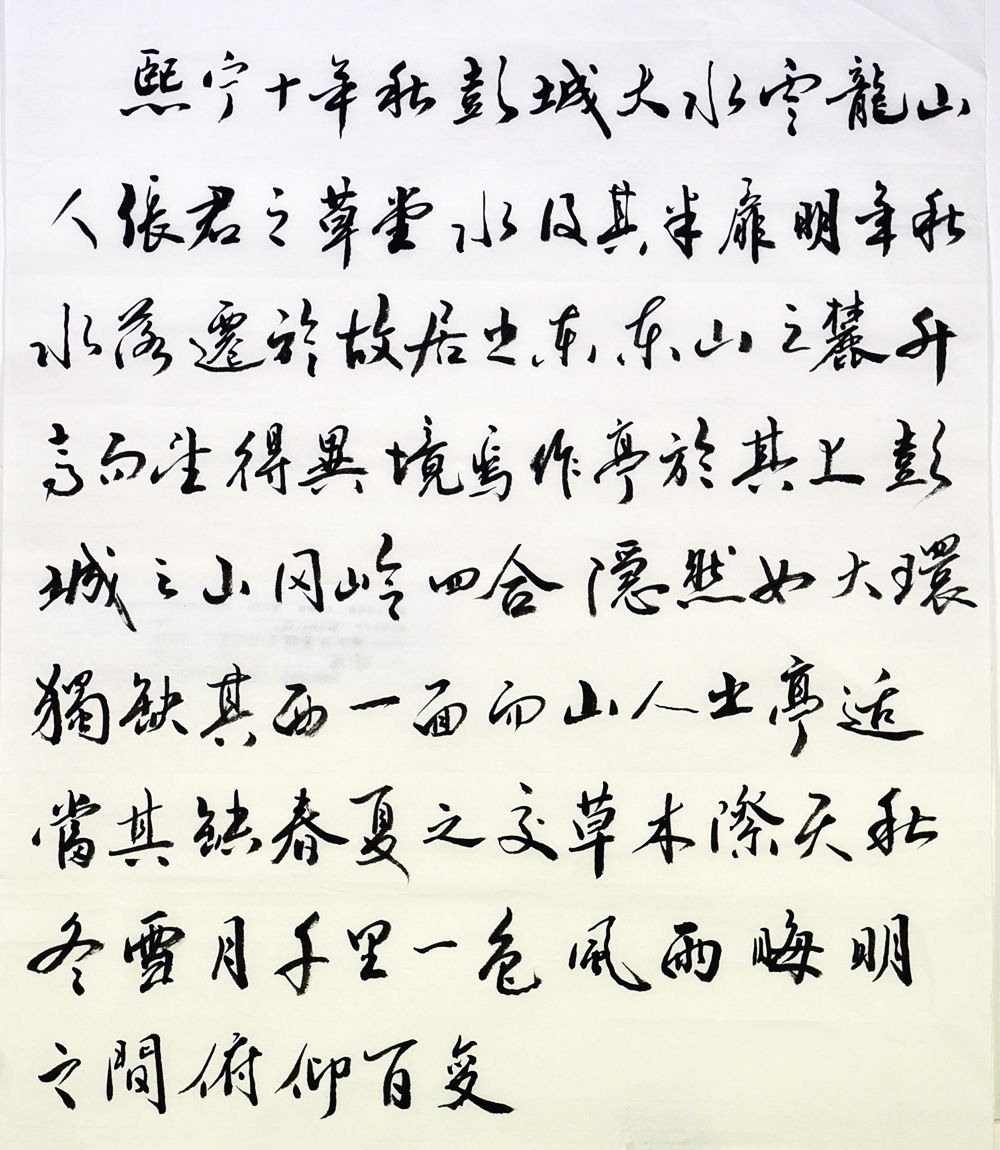 熙宁十年秋彭城大水雲龍山
人張君之草堂水及其半扉明年秋
水落遷於故居之东东山之麓升
高而望得異境焉作亭於其上彭
城之山冈岭四合隐然如大環
獨缺其西一面而山人之亭适
當其缺春夏之交草木際天秋
冬雪月千里一色風雨晦明
之間俯仰百变